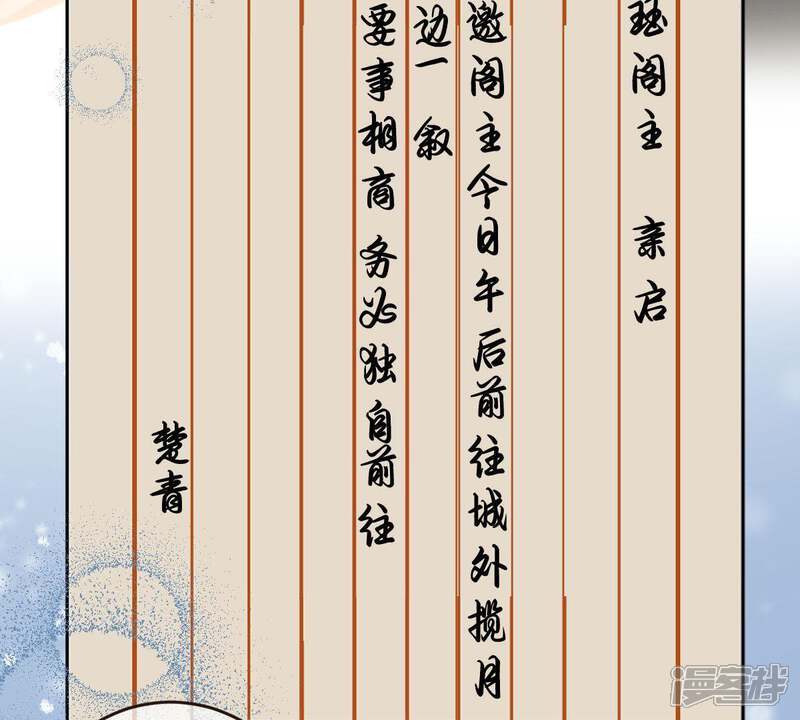 珏阁主 亲启
邀阁主今日午后前往城外揽月
边一叙
要事相商 务必独自前往
楚青
漫客栈